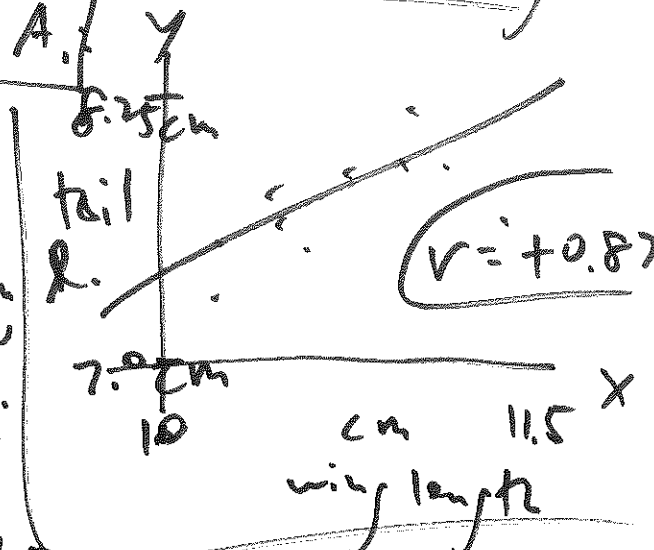 A. Y
8.25 cm
tail
l.
r = +0.87
7.0 cm
10 cm 11.5 X
wing length